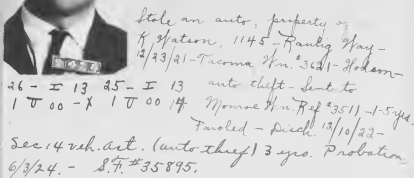 Stole an auto, property of
K Watson, 1145 - Way -
12/23/21 - Tacoma Wn. #3621 - Hodson -
auto theft - Sent to
Monroe Wn. Ref #3511 - 1-5 yrs.
Paroled - Disch 12/10/22 -
26 - I 13 25 - I 13
1 U 00 - 1 U 00 14
Sec 14 veh. act. (auto thief) 3 yrs. Probation
6/3/24. - S.F. #35895.